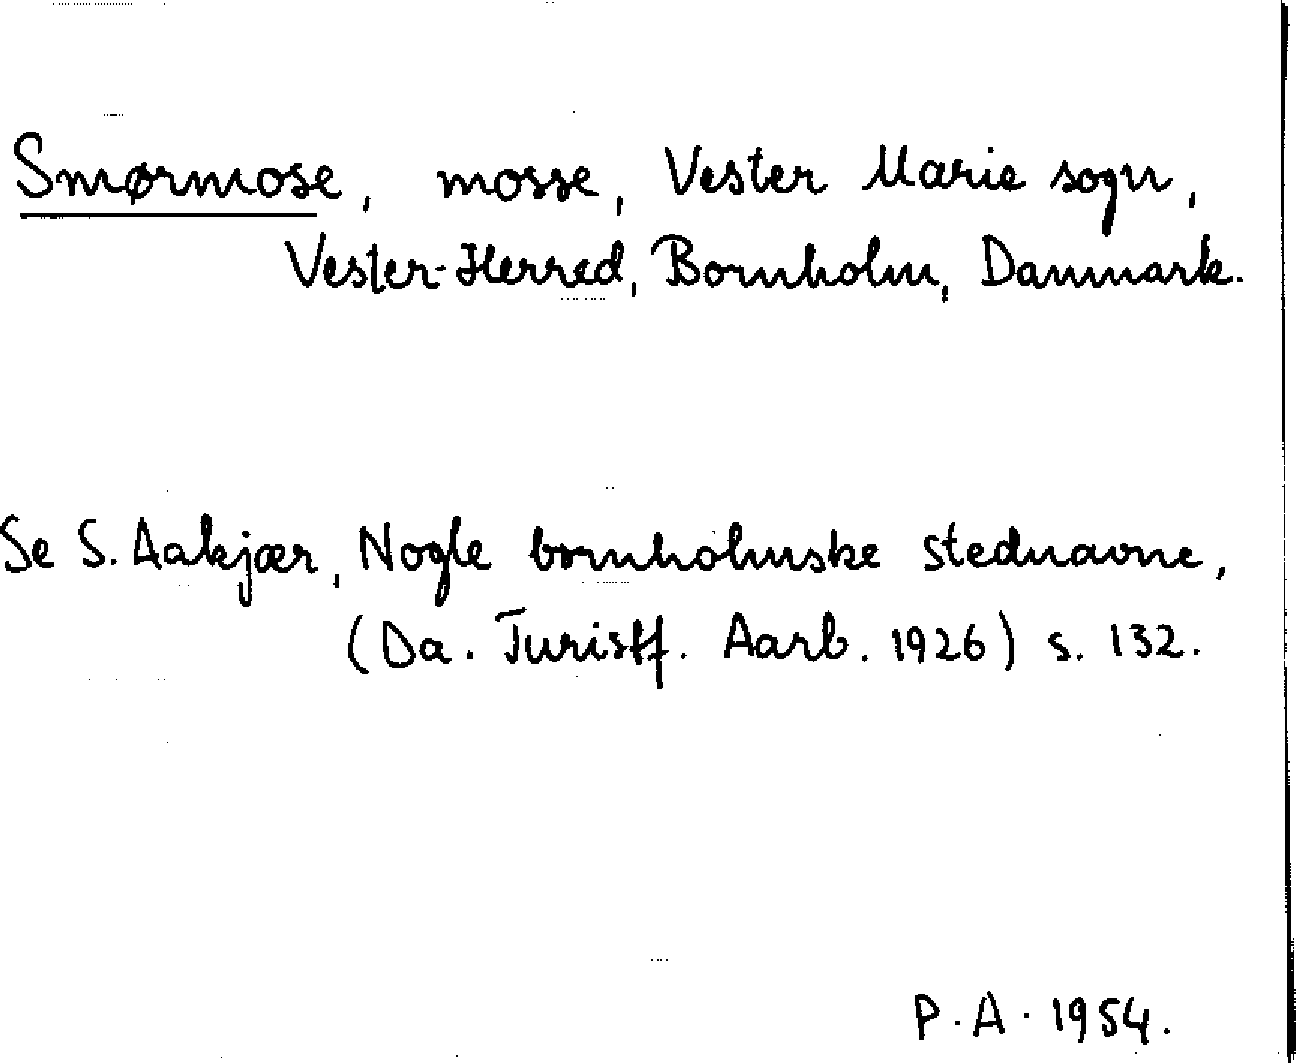 Smørmose, mosse, Vester Marie sogn,
Vester-Herred, Bornholm, Danmark.
Se S. Aakjær, Nogle bornholmske stednavne,
(Da. Turistf. Aarb. 1926) s. 132.
P.A. 1954.